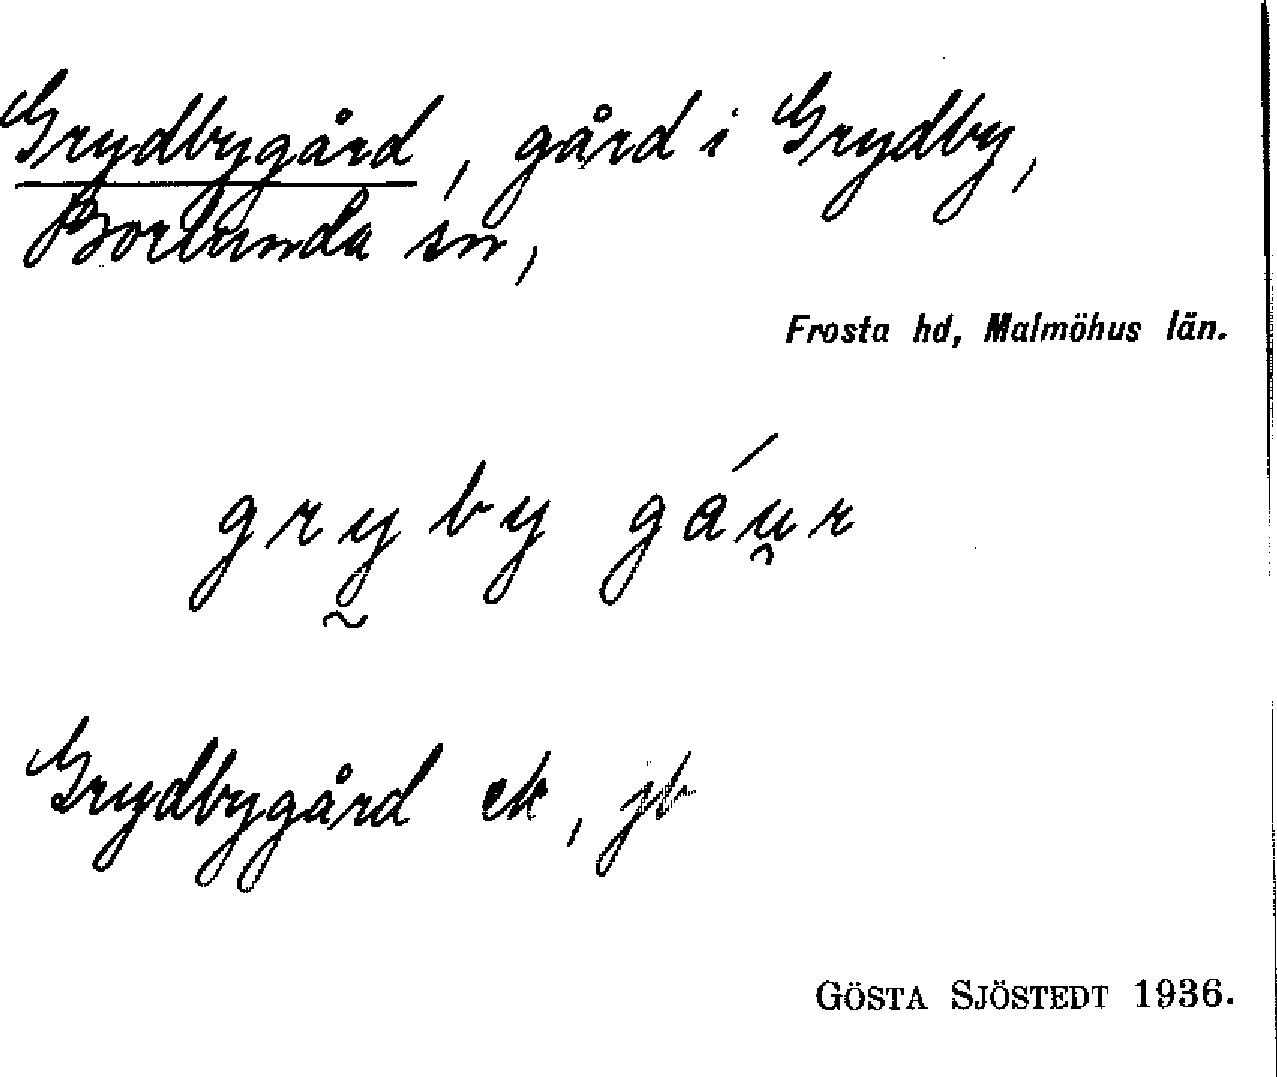 Grydbygård, gård i Grydby,
Borlunda sn,
Frosta hd, Malmöhus län.
gry̰by gáu̯r
Grydbygård ek, jb
GÖSTA SJÖSTEDT 1936.